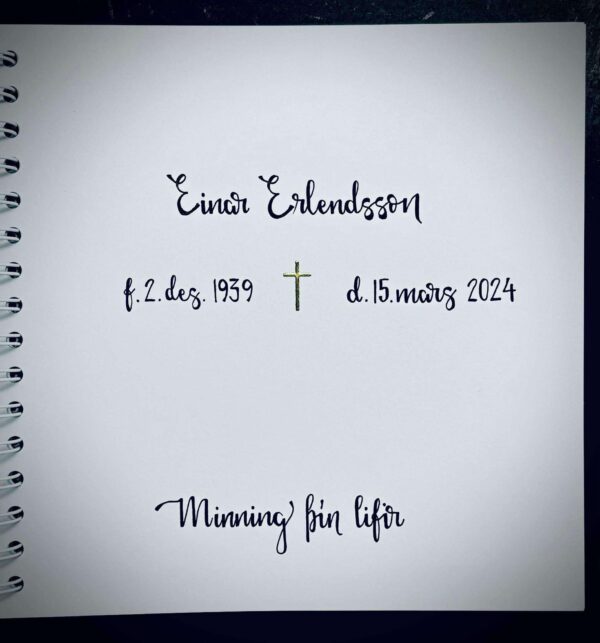 Einar Erlendsson
f. 2. des. 1939 d. 15. mars 2024
Minning þín lifir